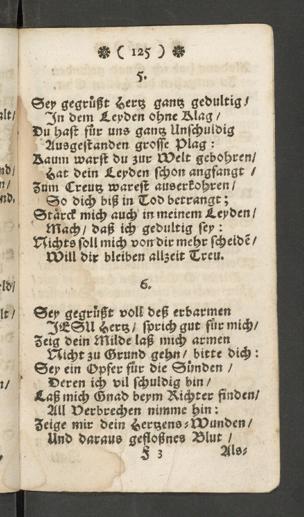 ❋ ( 125 ) ❋
5.
Sey gegrüßt Hertz gantz gedultig /
In dem Leyden ohne Klag /
Du hast für uns gantz Unschuldig
Ausgestanden grosse Plag :
Kaum warst du zur Welt gebohren /
Hat dein Leyden schon angfangt /
Zum Creutz warest auserkohren /
So dich biß in Tod betrangt ;
Stärck mich auch in meinem Leyden /
Mach / daß ich gedultig sey :
Nichts soll mich von dir mehr scheidē /
Will dir bleiben allzeit Treu.
6.
Sey gegrüßt voll deß erbarmen
JESU Hertz / sprich gut für mich /
Zeig dein Milde laß mich armen
Nicht zu Grund gehn / bitte dich :
Sey ein Opfer für die Sünden /
Deren ich vil schuldig bin /
Laß mich Gnad beym Richter finden /
All Verbrechen nimme hin :
Zeige mir dein Hertzens-Wunden /
Und daraus gefloßnes Blut /
F 3 Als-